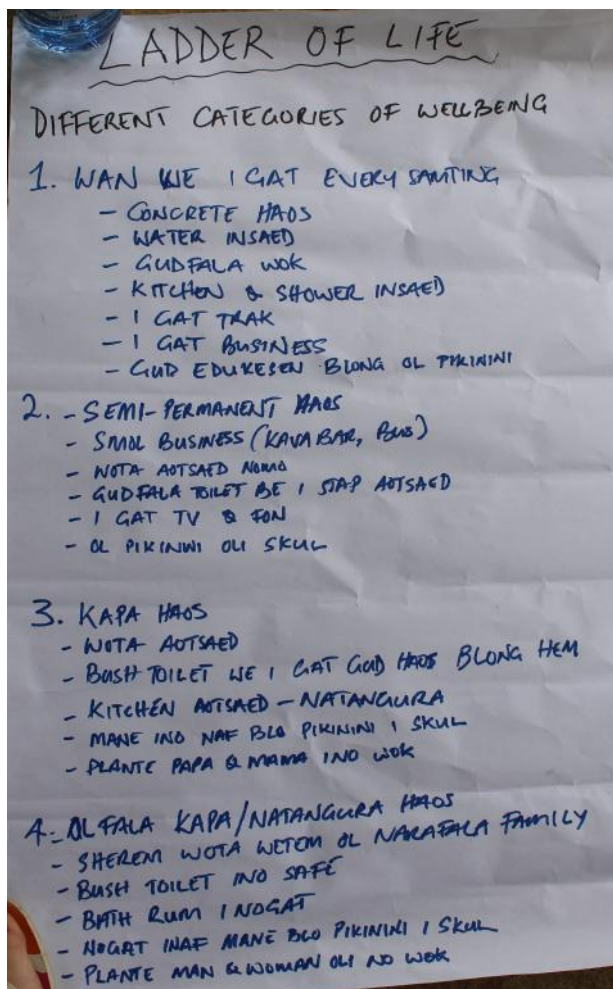 LADDER OF LIFE
DIFFERENT CATEGORIES OF WELLBEING
1. WAN WE I GAT EVERY SAMTING
- CONCRETE HAOS
- WATER INSAED
- GUDFALA WOK
- KITCHEN & SHOWER INSAED
- I GAT TRAK
- I GAT BUSINESS
- GUD EDUKESEN BLONG OL PIKININI
2. - SEMI-PERMANENT HAOS
- SMOL BUSINESS (KAVA BAR, BUS)
- WOTA AOTSAED NOMO
- GUDFALA TOILET BE I STAP AOTSAED
- I GAT TV & FON
- OL PIKININI OLI SKUL
3. KAPA HAOS
- WOTA AOTSAED
- BUSH TOILET WE I GAT GUD HAOS BLONG HEM
- KITCHEN AOTSAED - NATANGURA
- MANE INO NAF BLO PIKININI I SKUL
- PLANTE PAPA & MAMA INO WOK
4. OLFALA KAPA/NATANGURA HAOS
- SHEREM WOTA WETEM OL NARAFALA FAMILY
- BUSH TOILET INO SAFE
- BATH RUM I NOGAT
- NOGAT INAF MANE BLO PIKININI I SKUL
- PLANTE MAN & WOMAN OLI NO WOK